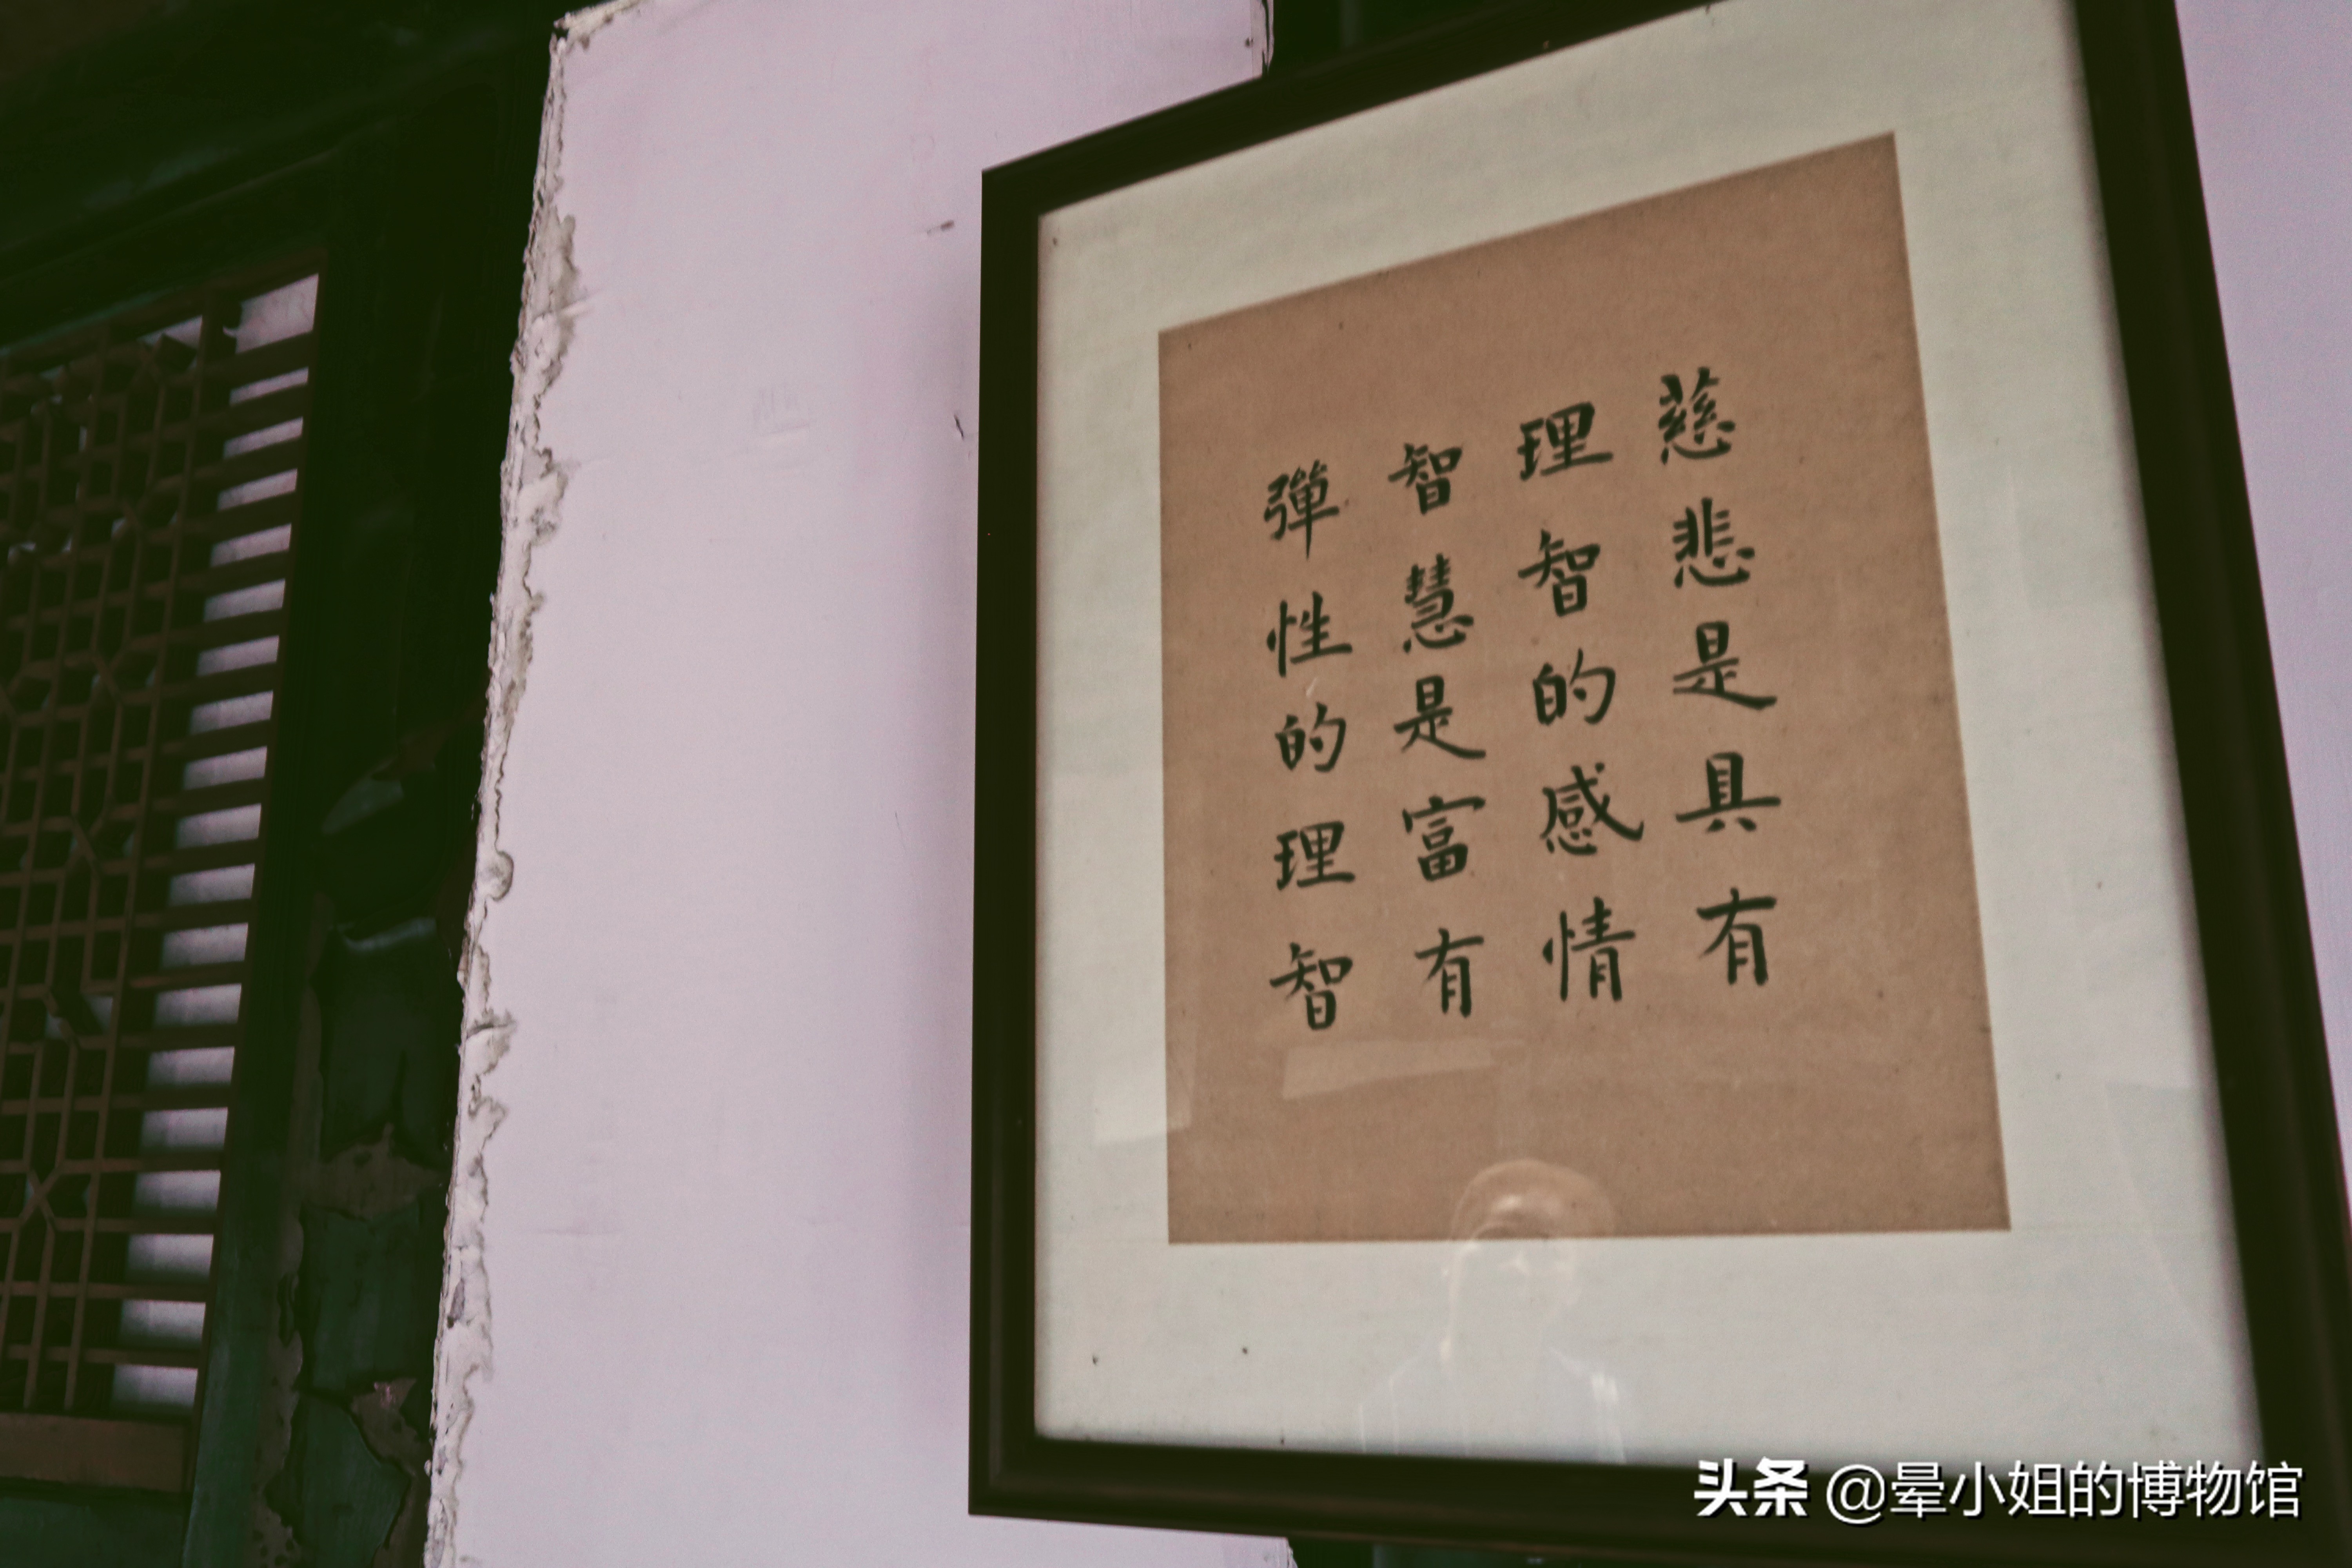 慈悲是具有
理智的感情
智慧是富有
彈性的理智
头条 @晕小姐的博物馆